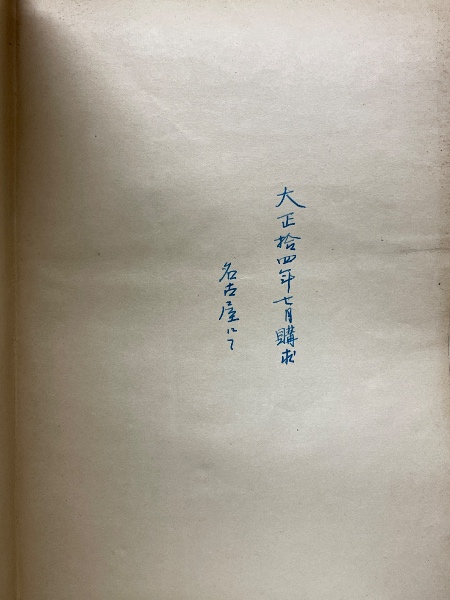 大正拾四年七月購求
名古屋にて